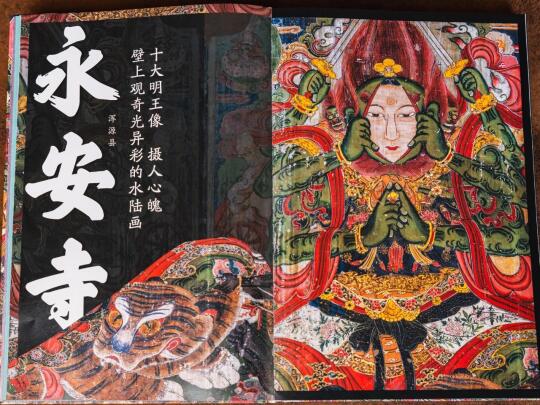 永安寺
浑源县
十大明王像 摄人心魄
壁上观奇光异彩的水陆画